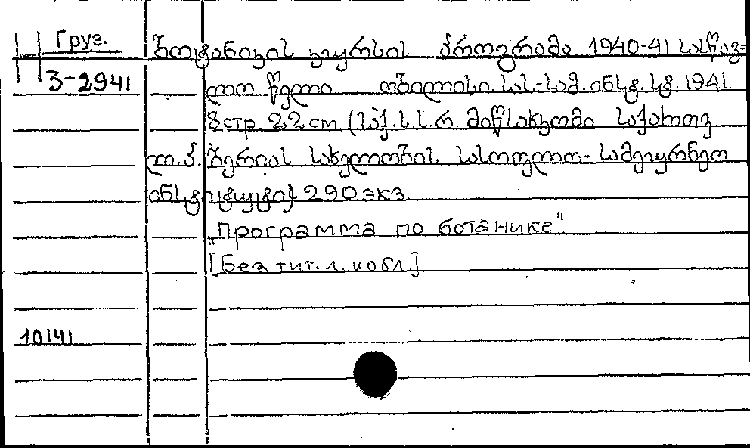 Груз.
3-2941
ბოტანიკის კურსის პროგრამა 1940-41 სასწავ-
ლო წელი თბილისი. სას.-სამ. ინსტ. სტ. 1941
8 стр. 22 cm (საქ. ს. ს. რ. მიწსახკომი საქართვ
ლ. პ. ბერიას სახელობის. სასოფლო-სამეურნეო
ინსტიტუტი) 290 экз.
„Программа по ботанике"
[Без тит. л. и обл.]
10141